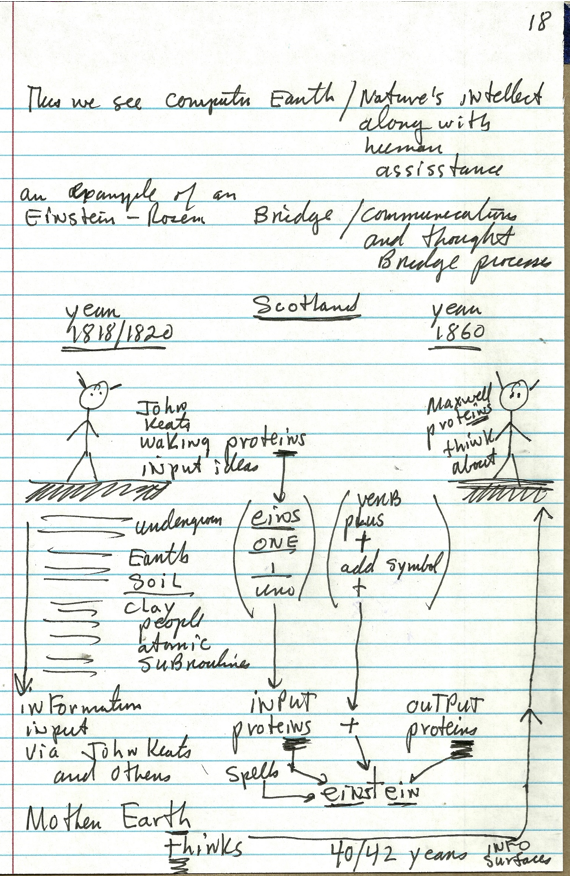 18
Thus we see computer Earth / Nature's intellect
along with
human
assisstance
an example of an
Einstein - Rosen Bridge / Communications
and thought
Bridge processes
year
1818/1820
Scotland
year
1860
John
Keats
walking proteins
input ideas
Maxwell
proteins
think
about
undergroun
Earth
Soil
clay
people
atomic
subroutines
eins
ONE
1
uno
verb
plus
+
add symbol
+
information
input
via John Keats
and others
input
proteins
+
output
proteins
spells
einstein
Mother Earth
thinks
40/42 years
info
surfaces